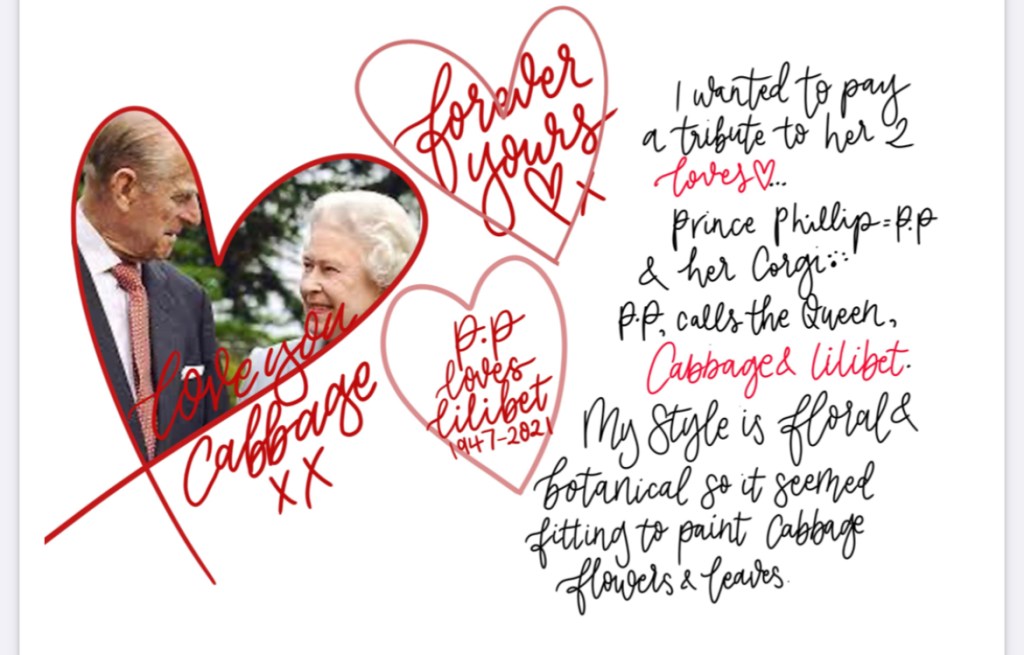 forever
yours
♡ x
Love you
Cabbage
xx
P.P
loves
lilibet
1947-2021
I wanted to pay
a tribute to her 2
loves♡...
Prince Phillip=P.P
& her Corgi
P.P, calls the Queen,
Cabbage & lilibet.
My Style is floral &
botanical so it seemed
fitting to paint Cabbage
flowers & leaves.